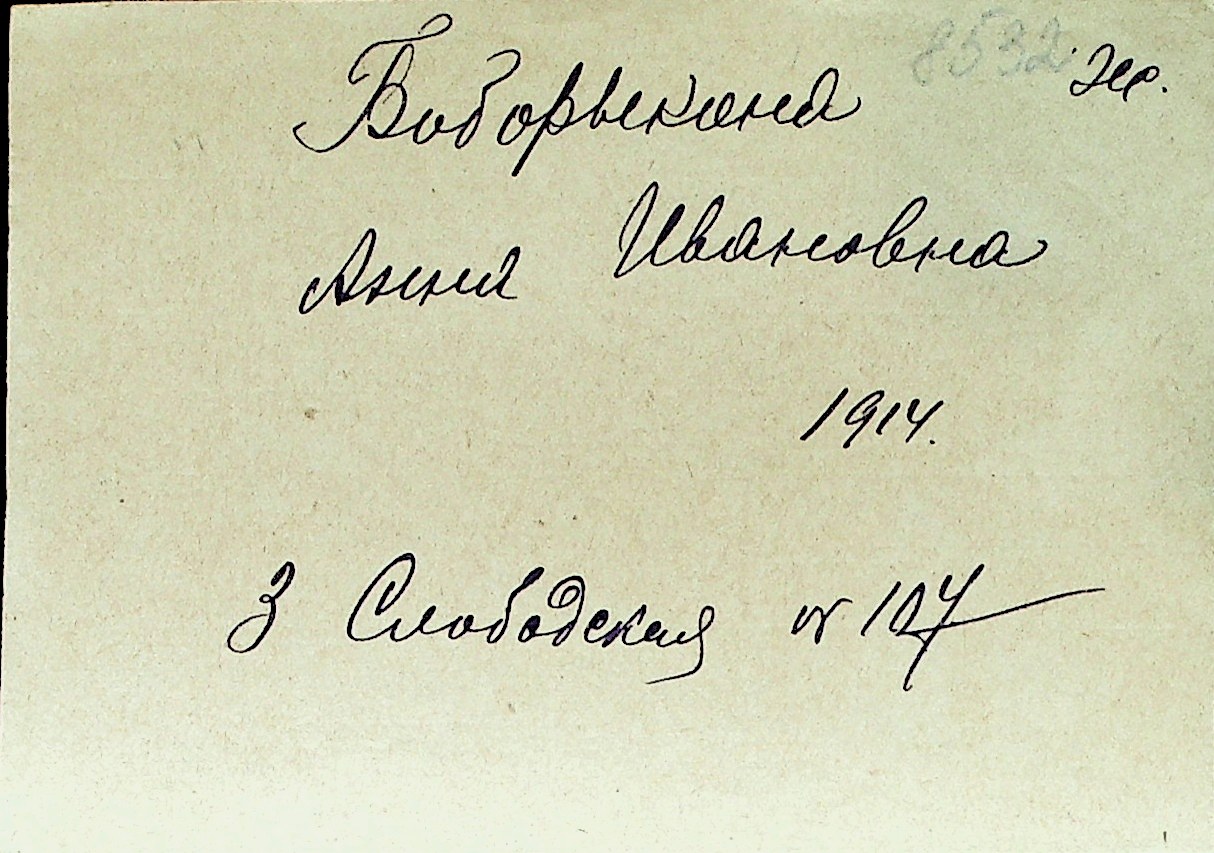 8532 ж.
Боборыкина
Анна Ивановна
1914.
3 Слободская № 107